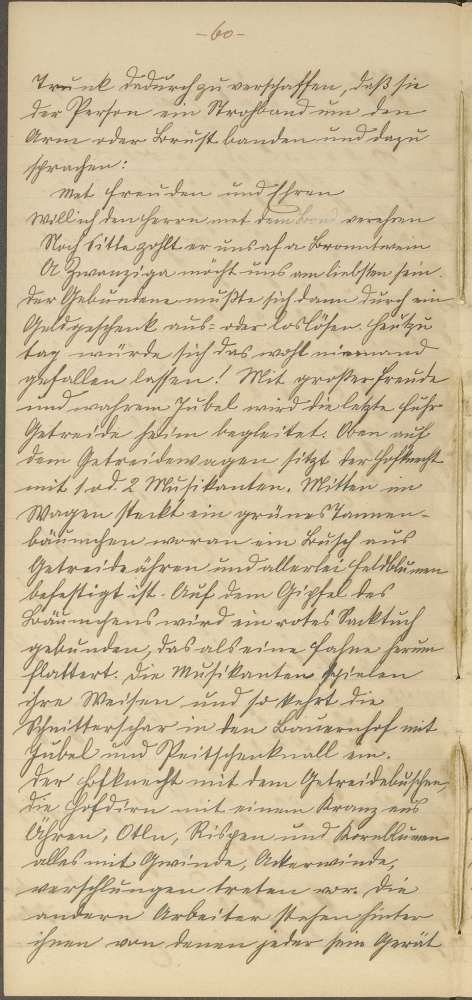 -60-
Trunk dadurch zu verschaffen, daß sie
der Person ein Strohband um den
Arm oder Brust banden und dazu
sprachen:
Met Freuden und Ehren
Will ich den Herrn met dem Band verehren
Noch Sitte zohlt er uns af a Branntwein
A Zwanziga möcht uns am liebsten sein.
Der Gebundene mußte sich dann durch ein
Geldgeschenk aus= oder loslösen. Heutzu
tag würde sich das wohl niemand
gefallen lassen! Mit großer Freude
und wahrem Jubel wird die letzte Fuhr
Getreide heim begleitet. Oben auf
dem Getreidewagen sitzt der Hofknecht
mit 1 od. 2 Musikanten. Mitten im
Wagen steckt ein grünes Tannen-
bäumchen woran ein Busch aus
Getreideähren und allerlei Feldblumen
befestigt ist. Auf dem Gipfel des
Bäumchens wird ein rotes Sacktuch
gebunden, das als eine Fahne herum
flattert. Die Musikanten spielen
ihre Weisen und so kehrt die
Schnitterschar in den Bauernhof mit
Jubel und Peitschenknall ein.
Der Hofknecht mit dem Getreidebuschen,
die Hofdirn mit einem Kranz aus
Ähren, Rispen und Kornblumen
alles mit Gwinde, Ackerwinde,
verschlungen treten vor. Die
andern Arbeiter stehen hinter
ihnen von denen jeder sein Gerät